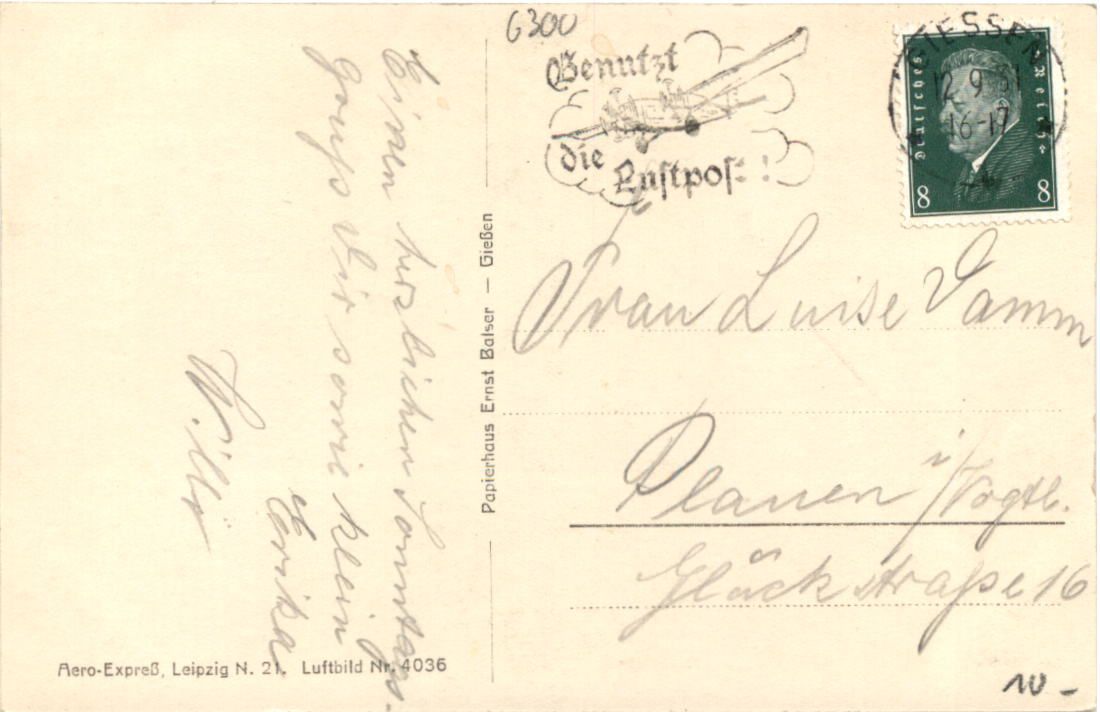 6300
Benutzt
die Luftpost!
GIESSEN
12 9 31
16-17
Deutsches Reich
8 8
Einen herzlichen Sonntags-
gruß Dir sowie klein
Erika
Willi
Papierhaus Ernst Balser — Gießen
Frau Luise Damm
Plauen i/Vogtl.
Glückstraße 16
Aero-Expreß, Leipzig N. 21. Luftbild Nr. 4036
10 -